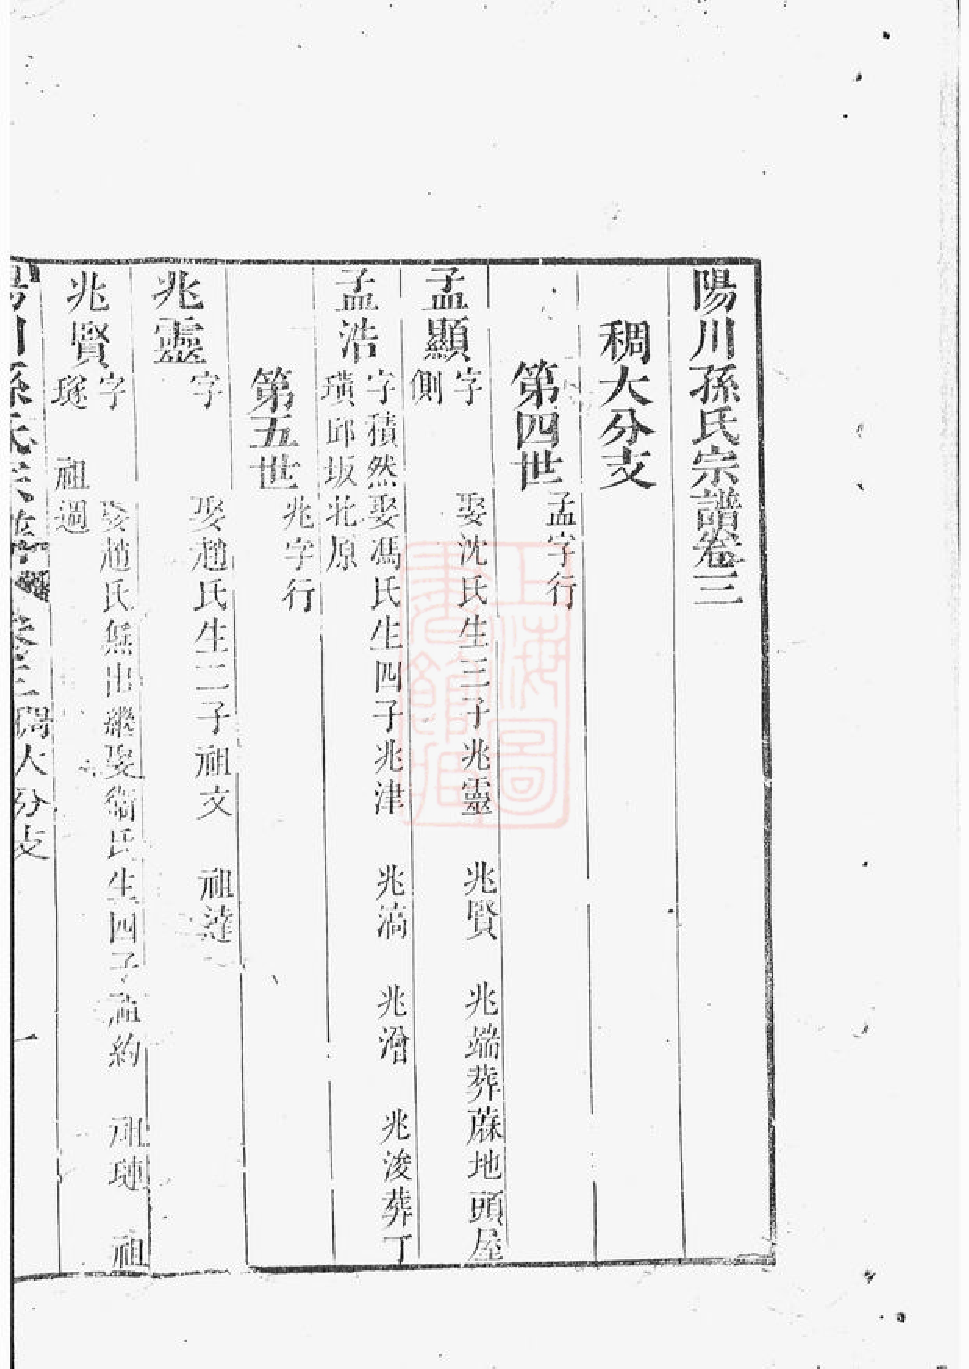 陽川孫氏宗譜卷三
稠大分支
第四世 孟字行
孟顯 字 娶沈氏生三子兆靈 兆賢 兆端葬蔴地頭屋
側
孟浩 字積然娶馮氏生四子兆津 兆滈 兆澮 兆浚葬丁
璜邱坂北原
第五世 兆字行
兆靈 字 娶趙氏生二子祖文 祖達
兆賢 字 娶趙氏無出繼娶衛氏生四子祖約 祖璉 祖
璲 祖週
陽川孫氏宗譜 卷三稠大分支 一
上海圖書館藏